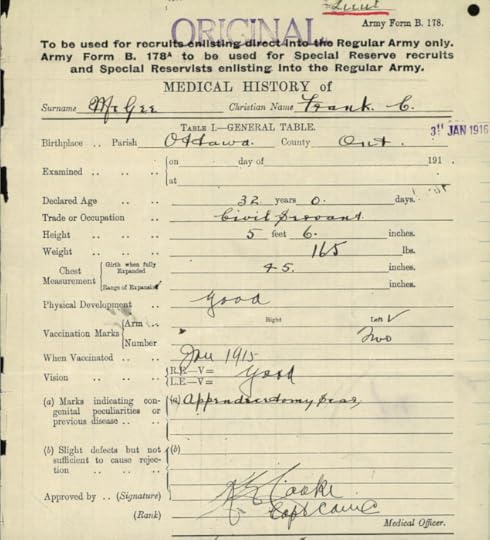 Lieut
ORIGINAL
Army Form B. 178.
To be used for recruits enlisting direct into the Regular Army only.
Army Form B. 178ᴬ to be used for Special Reserve recruits
and Special Reservists enlisting into the Regular Army.
MEDICAL HISTORY of
Surname McGee Christian Name Frank C.
TABLE I.—GENERAL TABLE.
31 JAN 1916
Birthplace .. Parish Ottawa. County Ont.
Examined .. .. {on day of 191 .
at
Declared Age .. .. 32 years 0. days.
Trade or Occupation .. Civil Servant.
Height .. .. 5 feet 6. inches.
Weight .. .. 165 lbs.
Chest Measurement { Girth when fully Expanded 45. inches.
Range of Expansion inches.
Physical Development .. good
Vaccination Marks { Arm .. Right Left √
Number Two
When Vaccinated .. .. Jan 1915
Vision .. .. { R.E.—V= good
L.E.—V=
(a) Marks indicating con- (a) Appendectomy Scar,
genital peculiarities or
previous disease .. ..
(b) Slight defects but not (b)
sufficient to cause rejec-
tion .. .. ..
Approved by .. (Signature) Cooke
(Rank) Capt CAMC
Medical Officer.